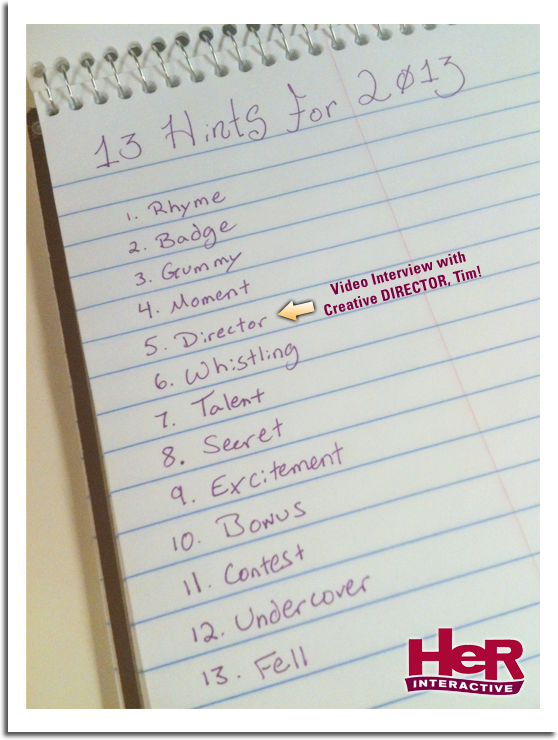 13 Hints for 2013
1. Rhyme
2. Badge
3. Gummy
4. Moment
Video Interview with
Creative DIRECTOR, Tim!
5. Director
6. Whistling
7. Talent
8. Secret
9. Excitement
10. Bonus
11. Contest
12. Undercover
13. Fell
HeR
INTERACTIVE